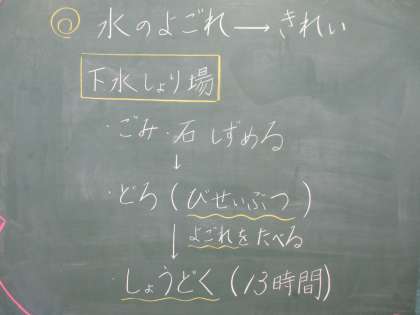 ◎ 水のよごれ→きれい
下水しょり場
・ごみ・石 しずめる
↓
・どろ(びせいぶつ)
↓ よごれをたべる
・しょうどく(13時間)